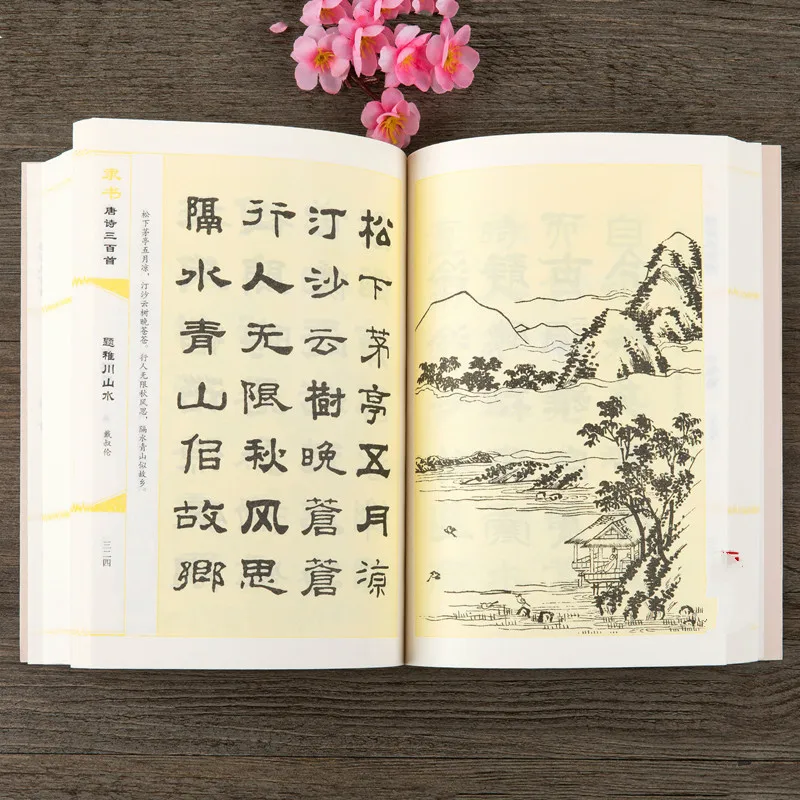 松下茅亭五月凉
汀沙云樹晚蒼蒼
行人无限秋风思
隔水青山佀故鄉
松下茅亭五月凉，汀沙云树晚苍苍。行人无限秋风思，隔水青山似故乡。
隶书 唐诗三百首
题稚川山水
戴叔伦
三二四